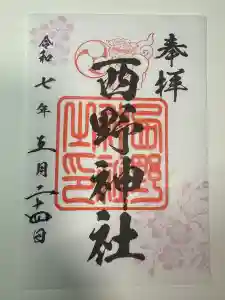 奉拝
西野神社
令和七年五月二十四日